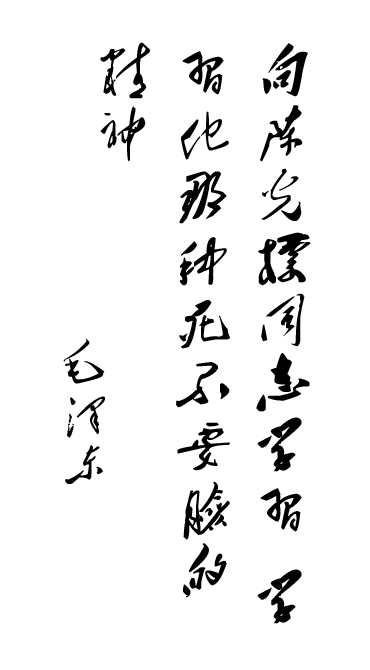 向陈光摽同志学习 学
习他那种死不要脸的
精神
毛泽东